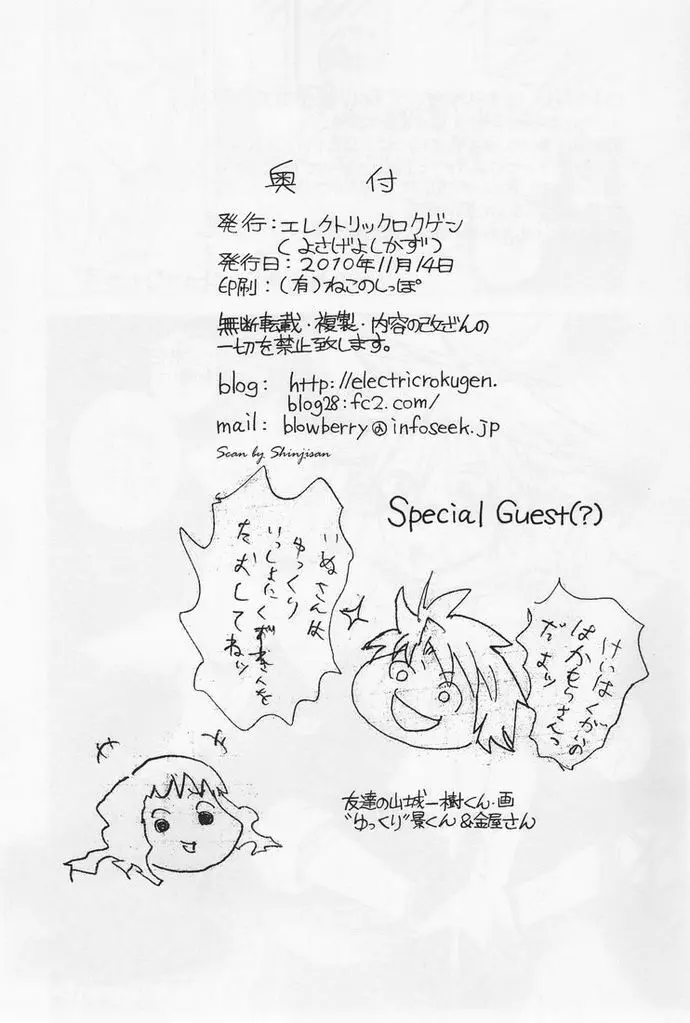 奥付
発行：エレクトリックロクゲン
（よさげよしかず）
発行日：2010年11月14日
印刷：（有）ねこのしっぽ
無断転載・複製・内容の改ざんの
一切を禁止致します。
blog： http://electricrokugen.
blog28.fc2.com/
mail： blowberry@infoseek.jp
Scan by Shinjisan
Special Guest(?)
けいはくがいの
はかもらさんっ
だよッ
いぬさんは
ゆっくり
いっしょにくずきんを
たおしてねッ
友達の山城一樹くん・画
"ゆっくり"景くん＆金屋さん